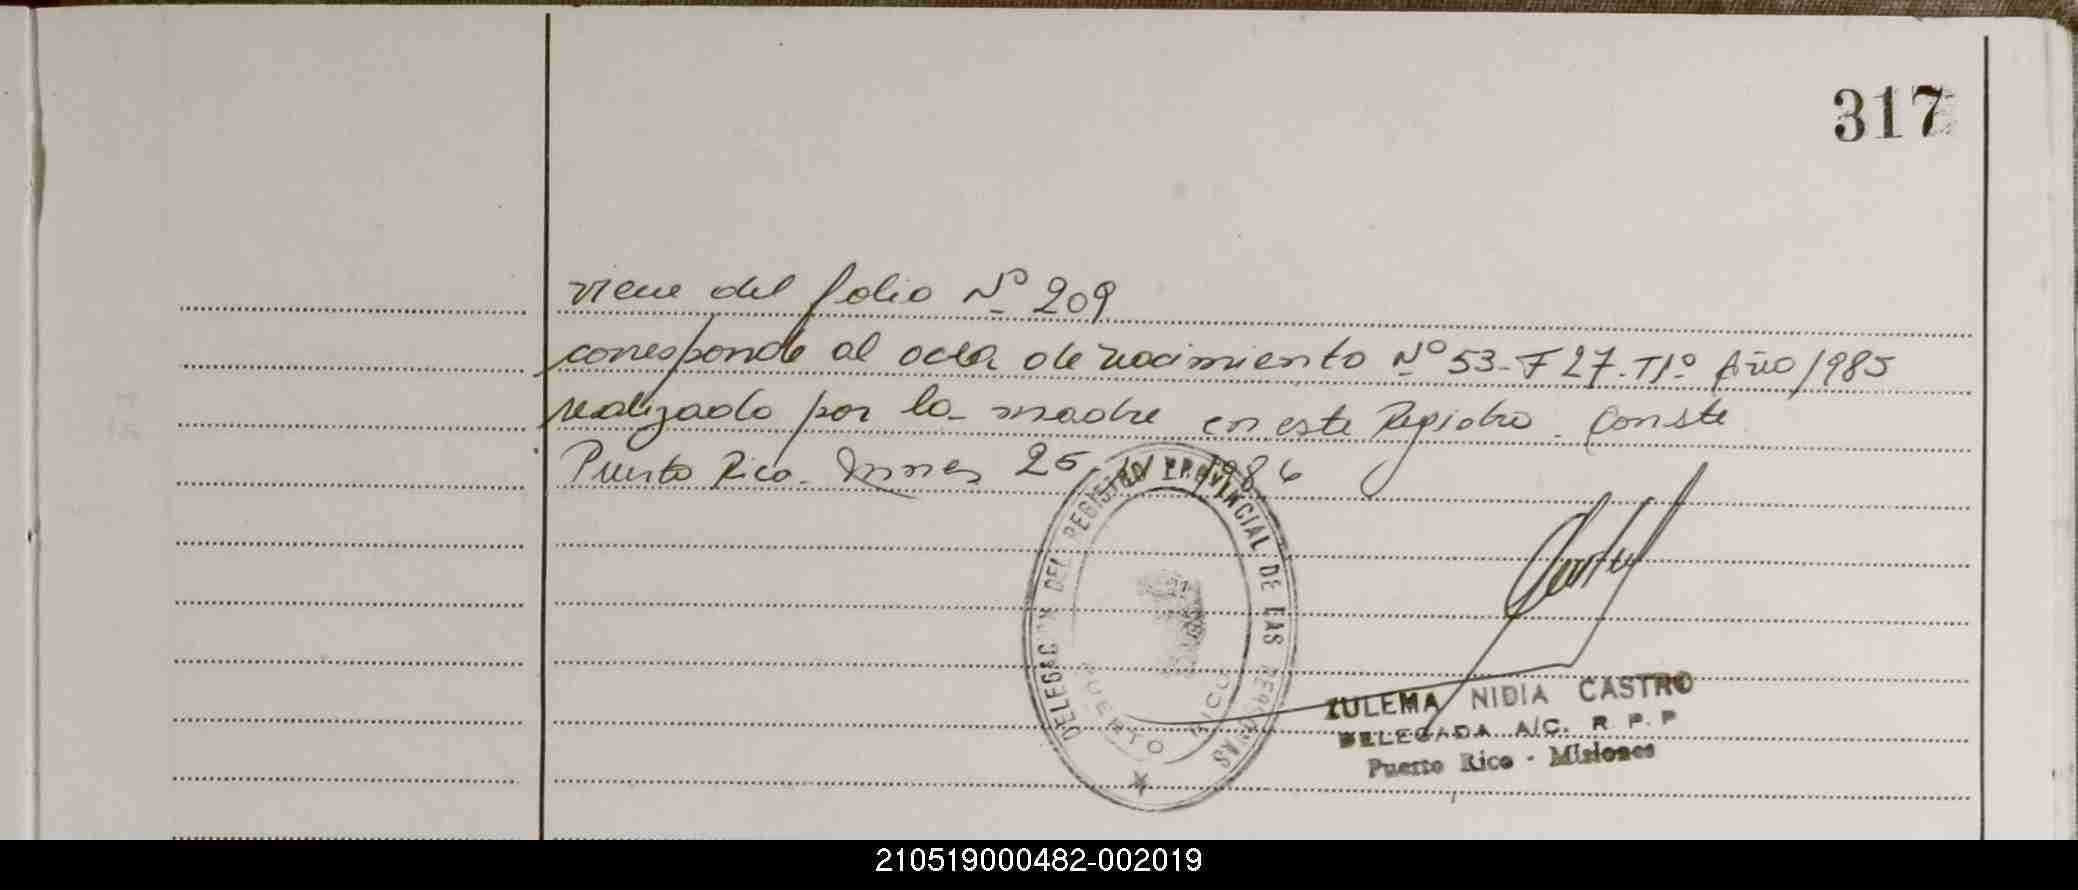 317
viene del folio Nº 209
corresponde al acta de nacimiento Nº 53-F 27-T1º Año/1985
realizado por la madre en este Registro. Conste
Puerto Rico. Mnes 25, 1986
DELEGACION DEL REGISTRO PROVINCIAL DE LAS PERSONAS
PUERTO RICO
ZULEMA NIDIA CASTRO
DELEGADA A/C. R. P. P
Puerto Rico - Misiones
210519000482-002019